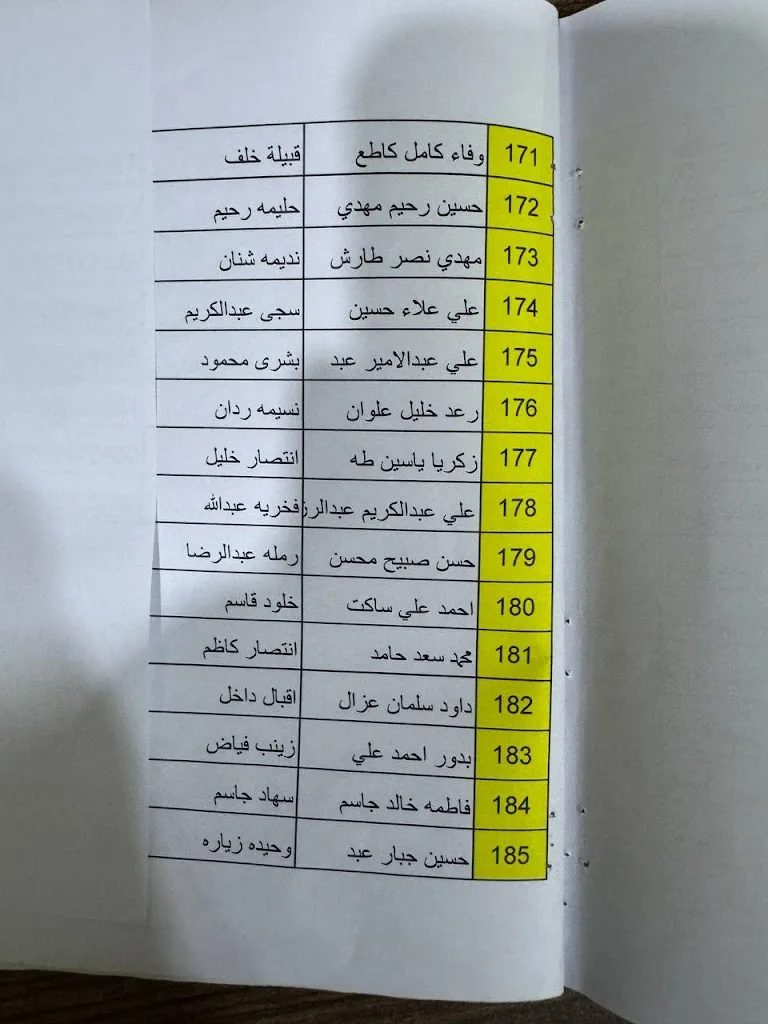 171 وفاء كامل كاطع قبيلة خلف
172 حسين رحيم مهدي حليمه رحيم
173 مهدي نصر طارش نديمه شنان
174 علي علاء حسين سجى عبدالكريم
175 علي عبدالامير عبد بشرى محمود
176 رعد خليل علوان نسيمه ردان
177 زكريا ياسين طه انتصار خليل
178 علي عبدالكريم عبدالرز فخريه عبدالله
179 حسن صبيح محسن رمله عبدالرضا
180 احمد علي ساكت خلود قاسم
181 محمد سعد حامد انتصار كاظم
182 داود سلمان عزال اقبال داخل
183 بدور احمد علي زينب فياض
184 فاطمه خالد جاسم سهاد جاسم
185 حسين جبار عبد وحيده زياره